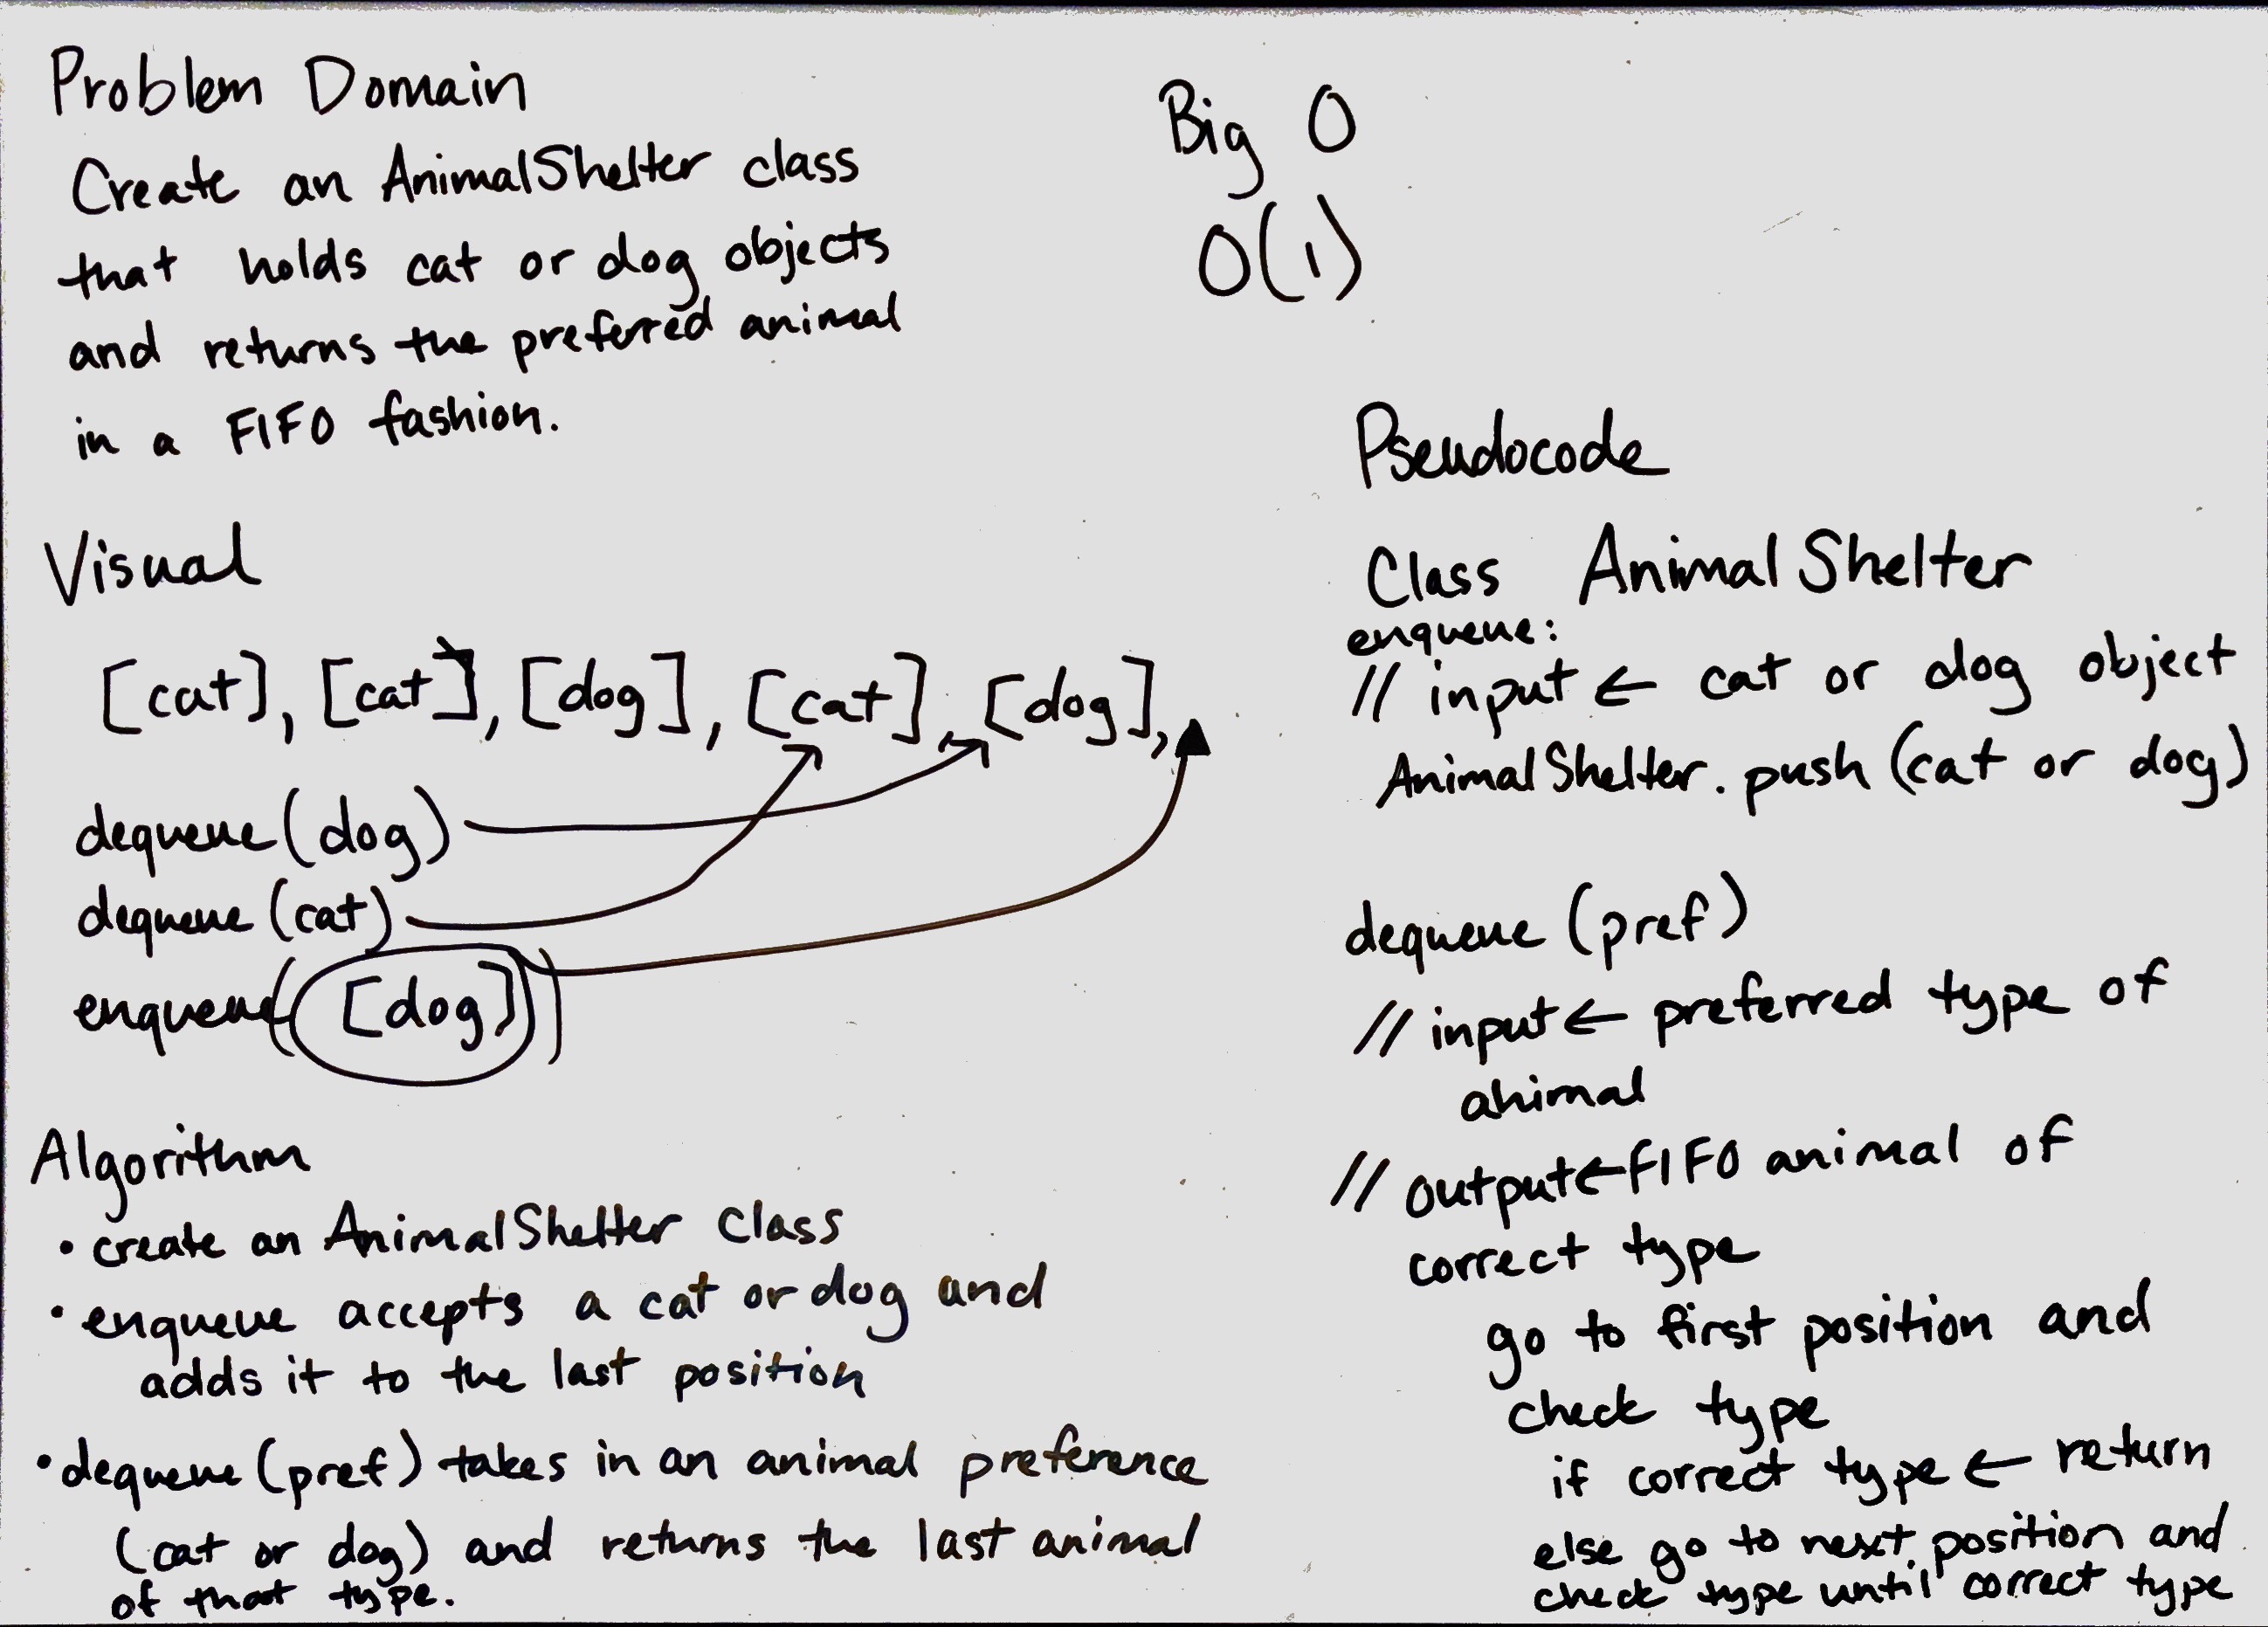 Problem Domain
Create an AnimalShelter class
that holds cat or dog objects
and returns the preferred animal
in a FIFO fashion.
Visual
[cat], [cat], [dog], [cat], [dog],
dequeue(dog)
dequeue(cat)
enqueue([dog])
Algorithm
• create an AnimalShelter Class
• enqueue accepts a cat or dog and
adds it to the last position
• dequeue(pref) takes in an animal preference
(cat or dog) and returns the last animal
of that type.
Big O
O(1)
Pseudocode
Class AnimalShelter
enqueue:
// input ← cat or dog object
AnimalShelter.push(cat or dog)
dequeue (pref)
// input ← preferred type of
animal
// output ← FIFO animal of
correct type
go to first position and
check type
if correct type ← return
else go to next position and
check type until correct type